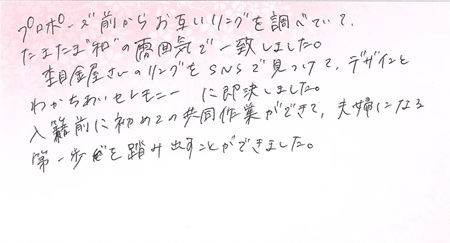 プロポーズ前からお互いリングを調べていて、
たまたま"和"の雰囲気で一致しました。
杢目金屋さんのリングをSNSで見つけて、デザインと
わかちあいセレモニー に即決しました。
入籍前に初めての共同作業ができて、夫婦になる
第一歩を踏み出すことができました。